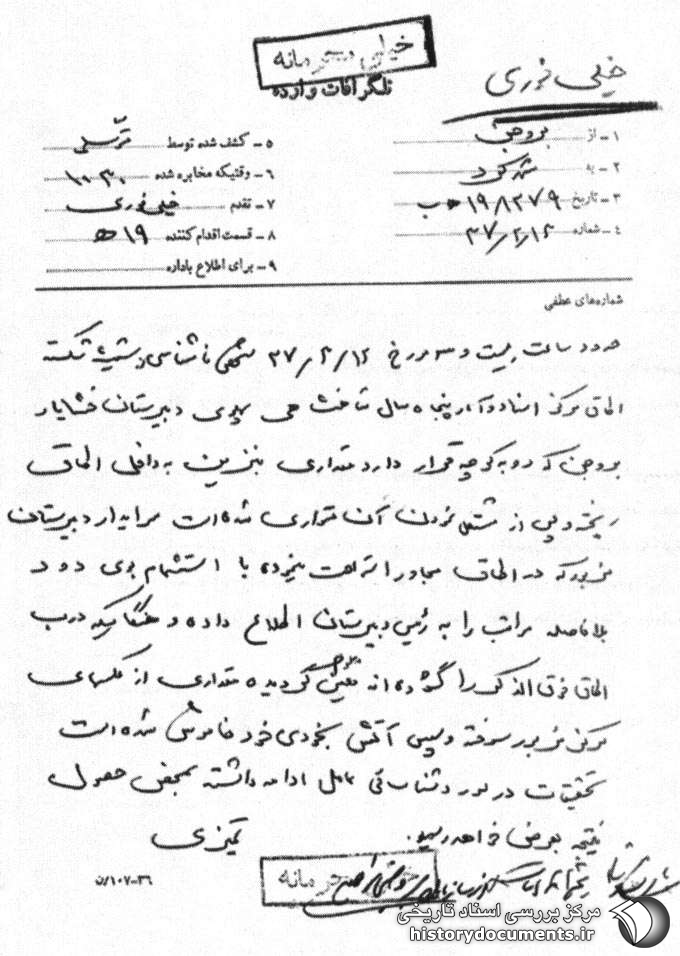 خیلی محرمانه
تلگرافات وارده
خیلی فوری
۱ - از بروجن
۲ - به شهرکرد
۳ - تاریخ ۱۹۸۲۷۹ ه ب
۴ - شماره ۳۷/۲/۱۶
۵ - کشف شده توسط
۶ - وقتیکه مخابره شده ۱۰۰۳۰
۷ - تقدم خیلی فوری
۸ - قسمت اقدام کننده ۱۹ ه
۹ - برای اطلاع باداره
شماره‌های عطفی
حدود ساعت بیست و سه مورخ ۳۷/۲/۱۶ شخص ناشناسی شیشه شکسته
اطاق مرکز اسناد و آثار پنجاه سال شاهنشاهی پهلوی دبیرستان خشایار
بروجن که رو به کوچه قرار دارد مقداری بنزین به داخل اطاق
ریخته و پس از مشتعل نمودن آن متواری شده است سرایدار دبیرستان
مزبور که در اطاق مجاور استراحت مینموده با استشمام بوی دود
بلافاصله مراتب را به رئیس دبیرستان اطلاع داده و هنگامیکه درب
اطاق فوق الذکر را گشوده‌اند معلوم گردیده مقداری از عکسهای
مرکز مزبور سوخته و سپس آتش بخودی خود خاموش شده است
تحقیقات در مورد شناسائی عامل ادامه داشته بمحض حصول
نتیجه بعرض خواهد رسید.
تمیزی
خیلی محرمانه
۳۶-۱۰۷/ن
مرکز بررسی اسناد تاریخی
historydocuments.ir